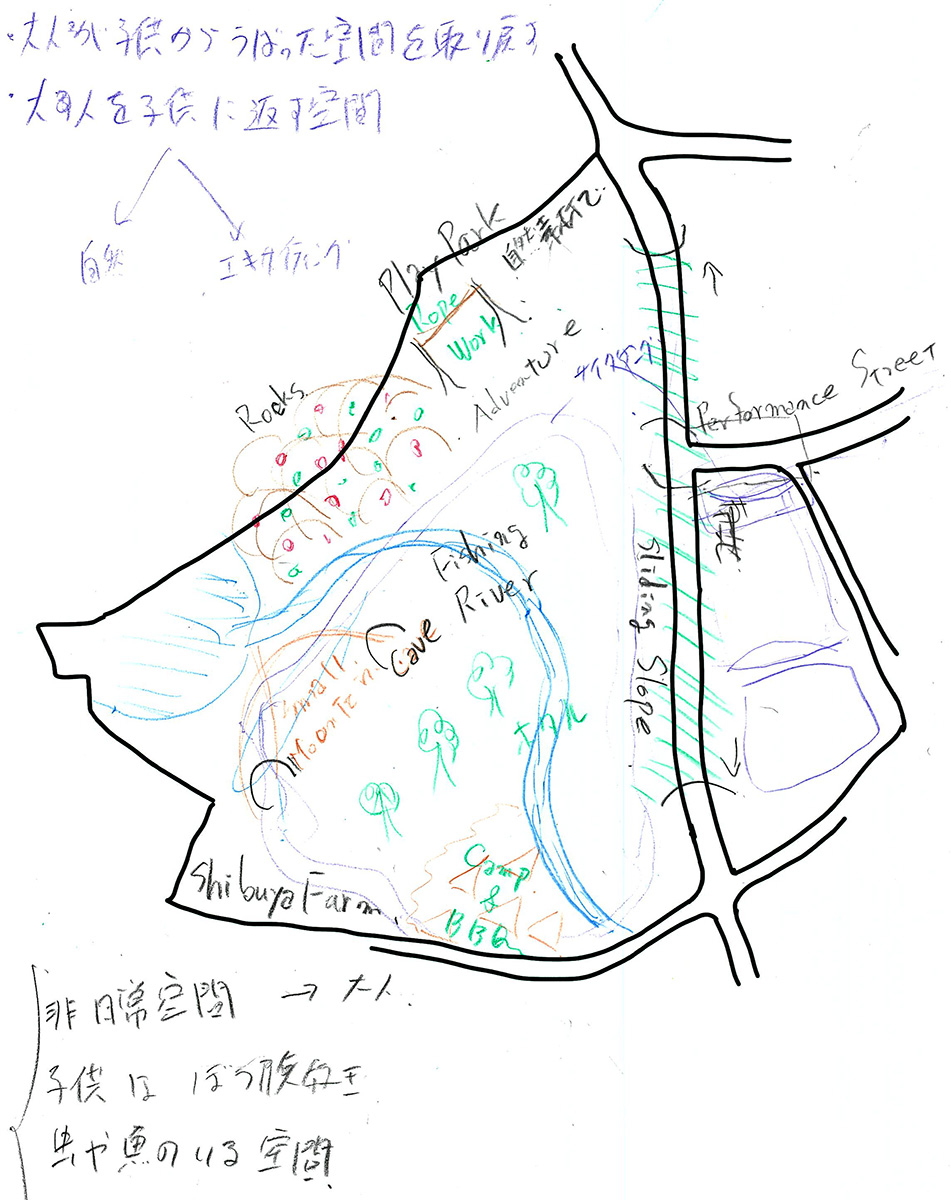 ・大人が子供からうばった空間を取り戻す
・大人を子供に返す空間
自然
エキサイティング
Play Park
自然素材で
Rope
Work
Adventure
サイクリング
Rocks
Performance Street
Fishing
River
Sliding Slope
Cave
Small
Mountain
ホタル
Camp
&
BBQ
Shibuya Farm
非日常空間 → 大人
子供は
虫や魚のいる空間